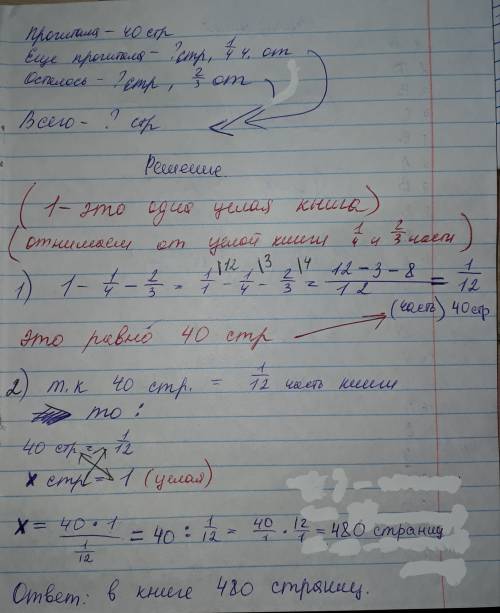 Прочитала - 40 стр
Еще прочитала - ? стр, 1/4 ч. от
Осталось - ? стр, 2/3 от
Всего - ? стр
Решение.
(1 - это одна целая книга)
(отнимаем от целой книги 1/4 и 2/3 части)
1) 1 - 1/4 - 2/3 = 1/1 |12 - 1/4 |3 - 2/3 |4 = (12 - 3 - 8)/12 = 1/12
(часть) 40 стр
это равно 40 стр
2) т.к 40 стр. = 1/12 часть книги
то:
40 стр = 1/12
х стр = 1 (целая)
х = (40 · 1)/(1/12) = 40 : 1/12 = 40/1 · 12/1 = 480 страниц
Ответ: в книге 480 страниц.